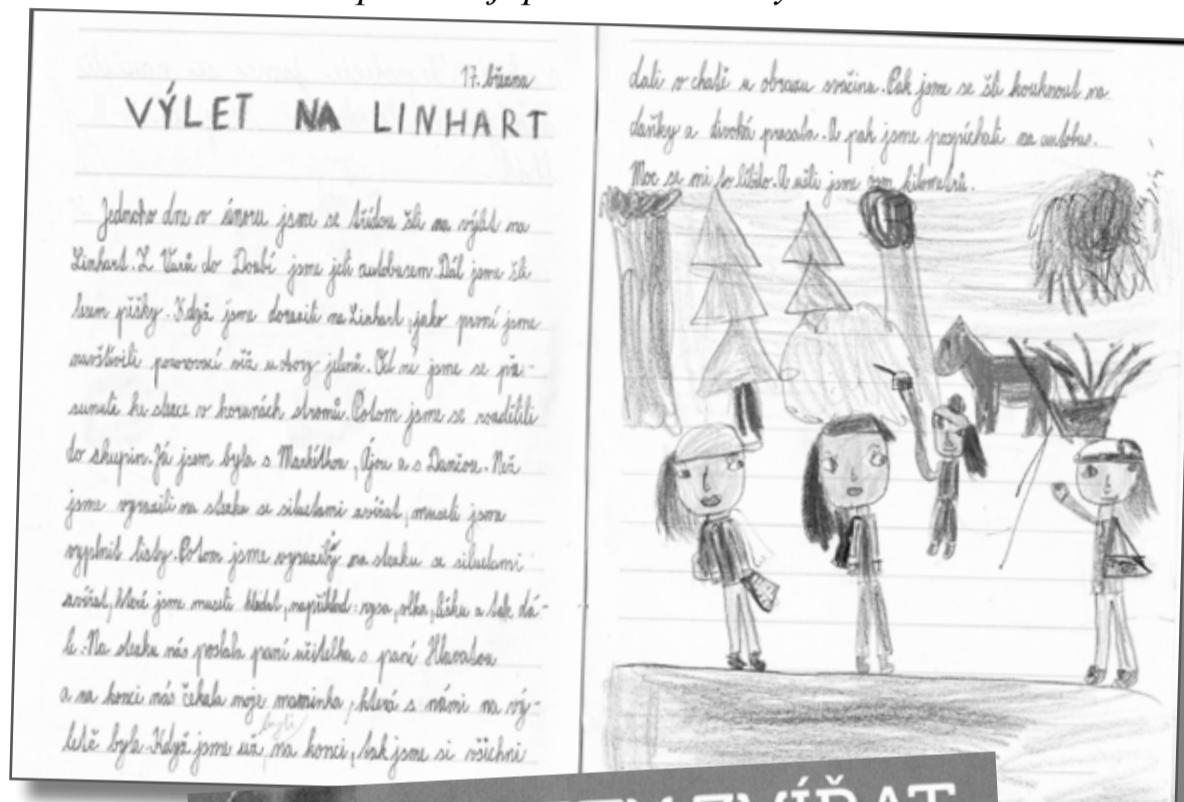 17. března
VÝLET NA LINHART
Jednoho dne v únoru jsme se třídou šli na výlet na
Linhart. Z Varů do Doubí jsme jeli autobusem. Dál jsme šli
lesem pěšky. Když jsme dorazili na Linhart, jako první jsme
navštívili pozorovací věž u obory jelenů. Od ní jsme se pře-
sunuli ke stezce v korunách stromů. Potom jsme se rozdělili
do skupin. Já jsem byla s Markétkou, Ájou a s Dančou. Než
jsme vyrazili na stezku se siluetami zvířat, museli jsme
vyplnit listy. Potom jsme vyrazily na stezku se siluetami
zvířat, které jsme museli hledat, například: rysa, vlka, lišku a tak dá-
le. Na stezku nás poslala paní učitelka s paní Hlavatou
a na konci nás čekala moje maminka, která s námi na vý-
letě byla. Když jsme už byli na konci, tak jsme si všichni
dali v chatě u obrazu svačinu. Pak jsme se šli kouknout na
daňky a divoká prasata. A pak jsme pospíchali na autobus.
Moc se mi to líbilo. A ušli jsme osm kilometrů.
ZVÍŘAT